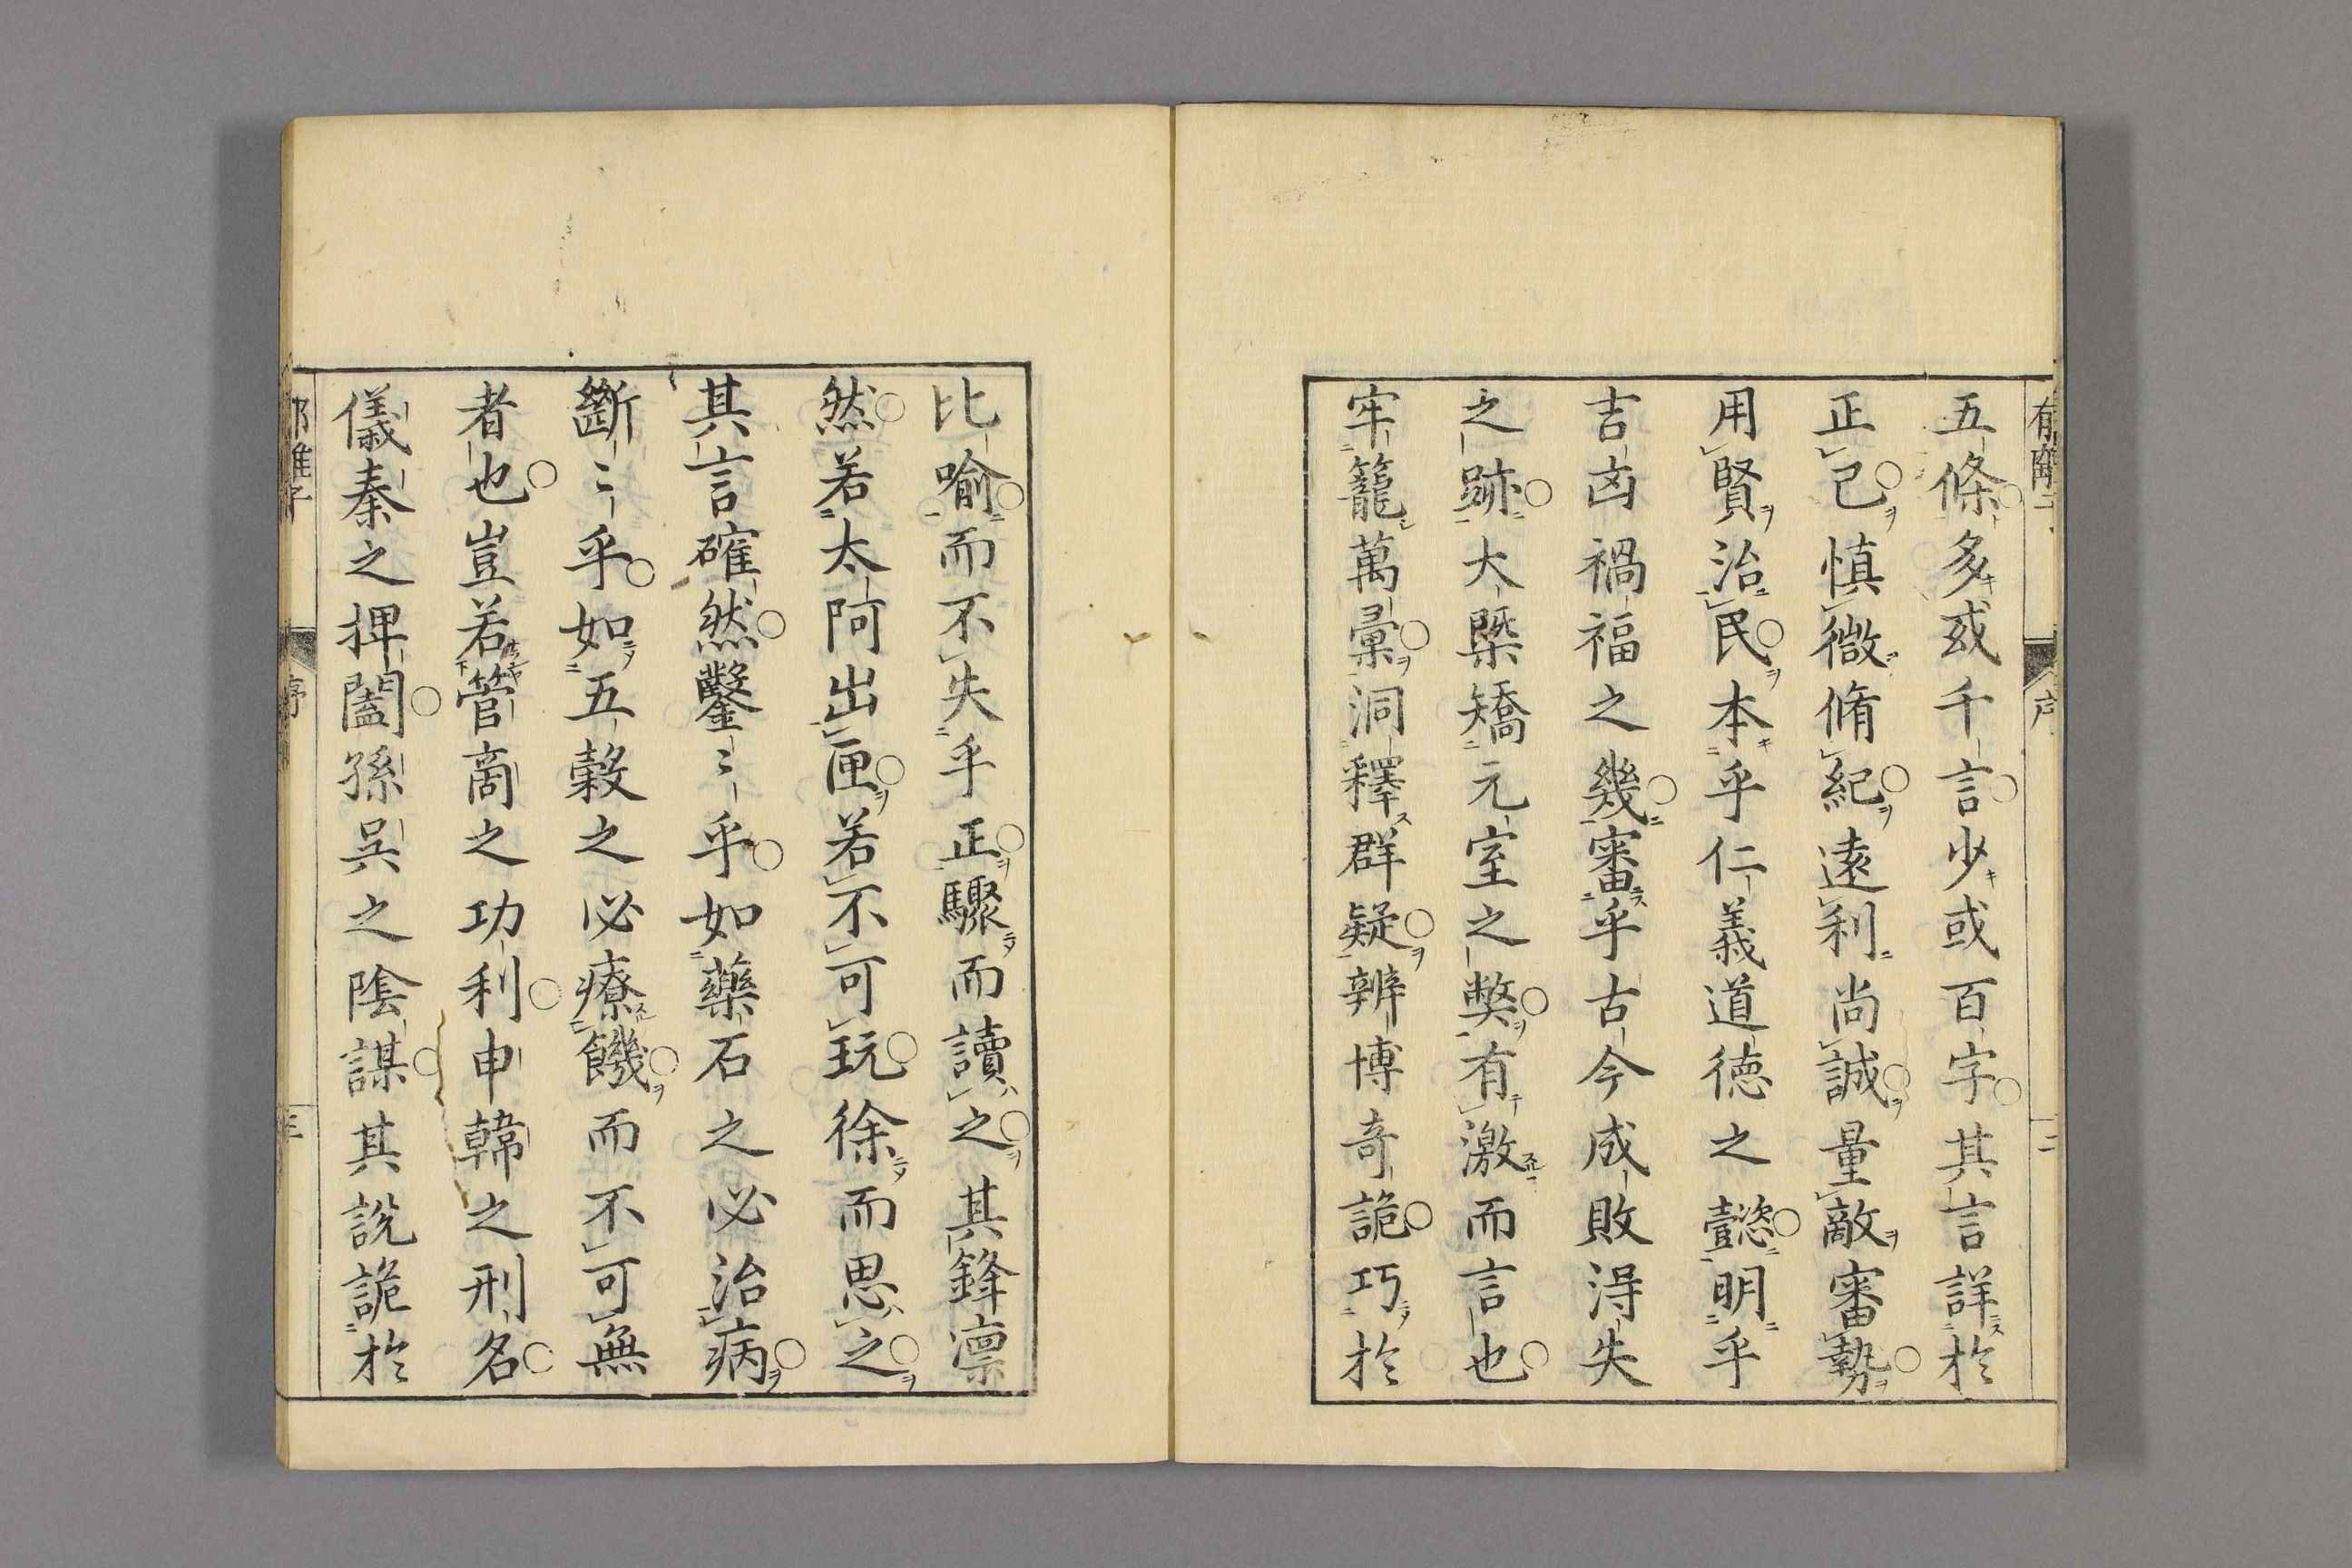 五條多或千言少或百字其言詳於
正己慎微脩紀遠利尚誠量敵審勢
用賢治民本乎仁義道徳之懿明乎
吉凶禍福之幾審乎古今成敗淂失
之跡大槩矯元室之弊有激而言也
牢籠萬彙洞釋群疑辨博奇詭巧於
比喻而不失乎正驟而讀之其鋒凛
然若太阿出匣若不可玩徐而思之
其言確然鑿〻乎如藥石之必治病
斷〻乎如五穀之必療饑而不可無
者也豈若管商之功利申韓之刑名
儀秦之捭闔孫吳之隂謀其說詭於